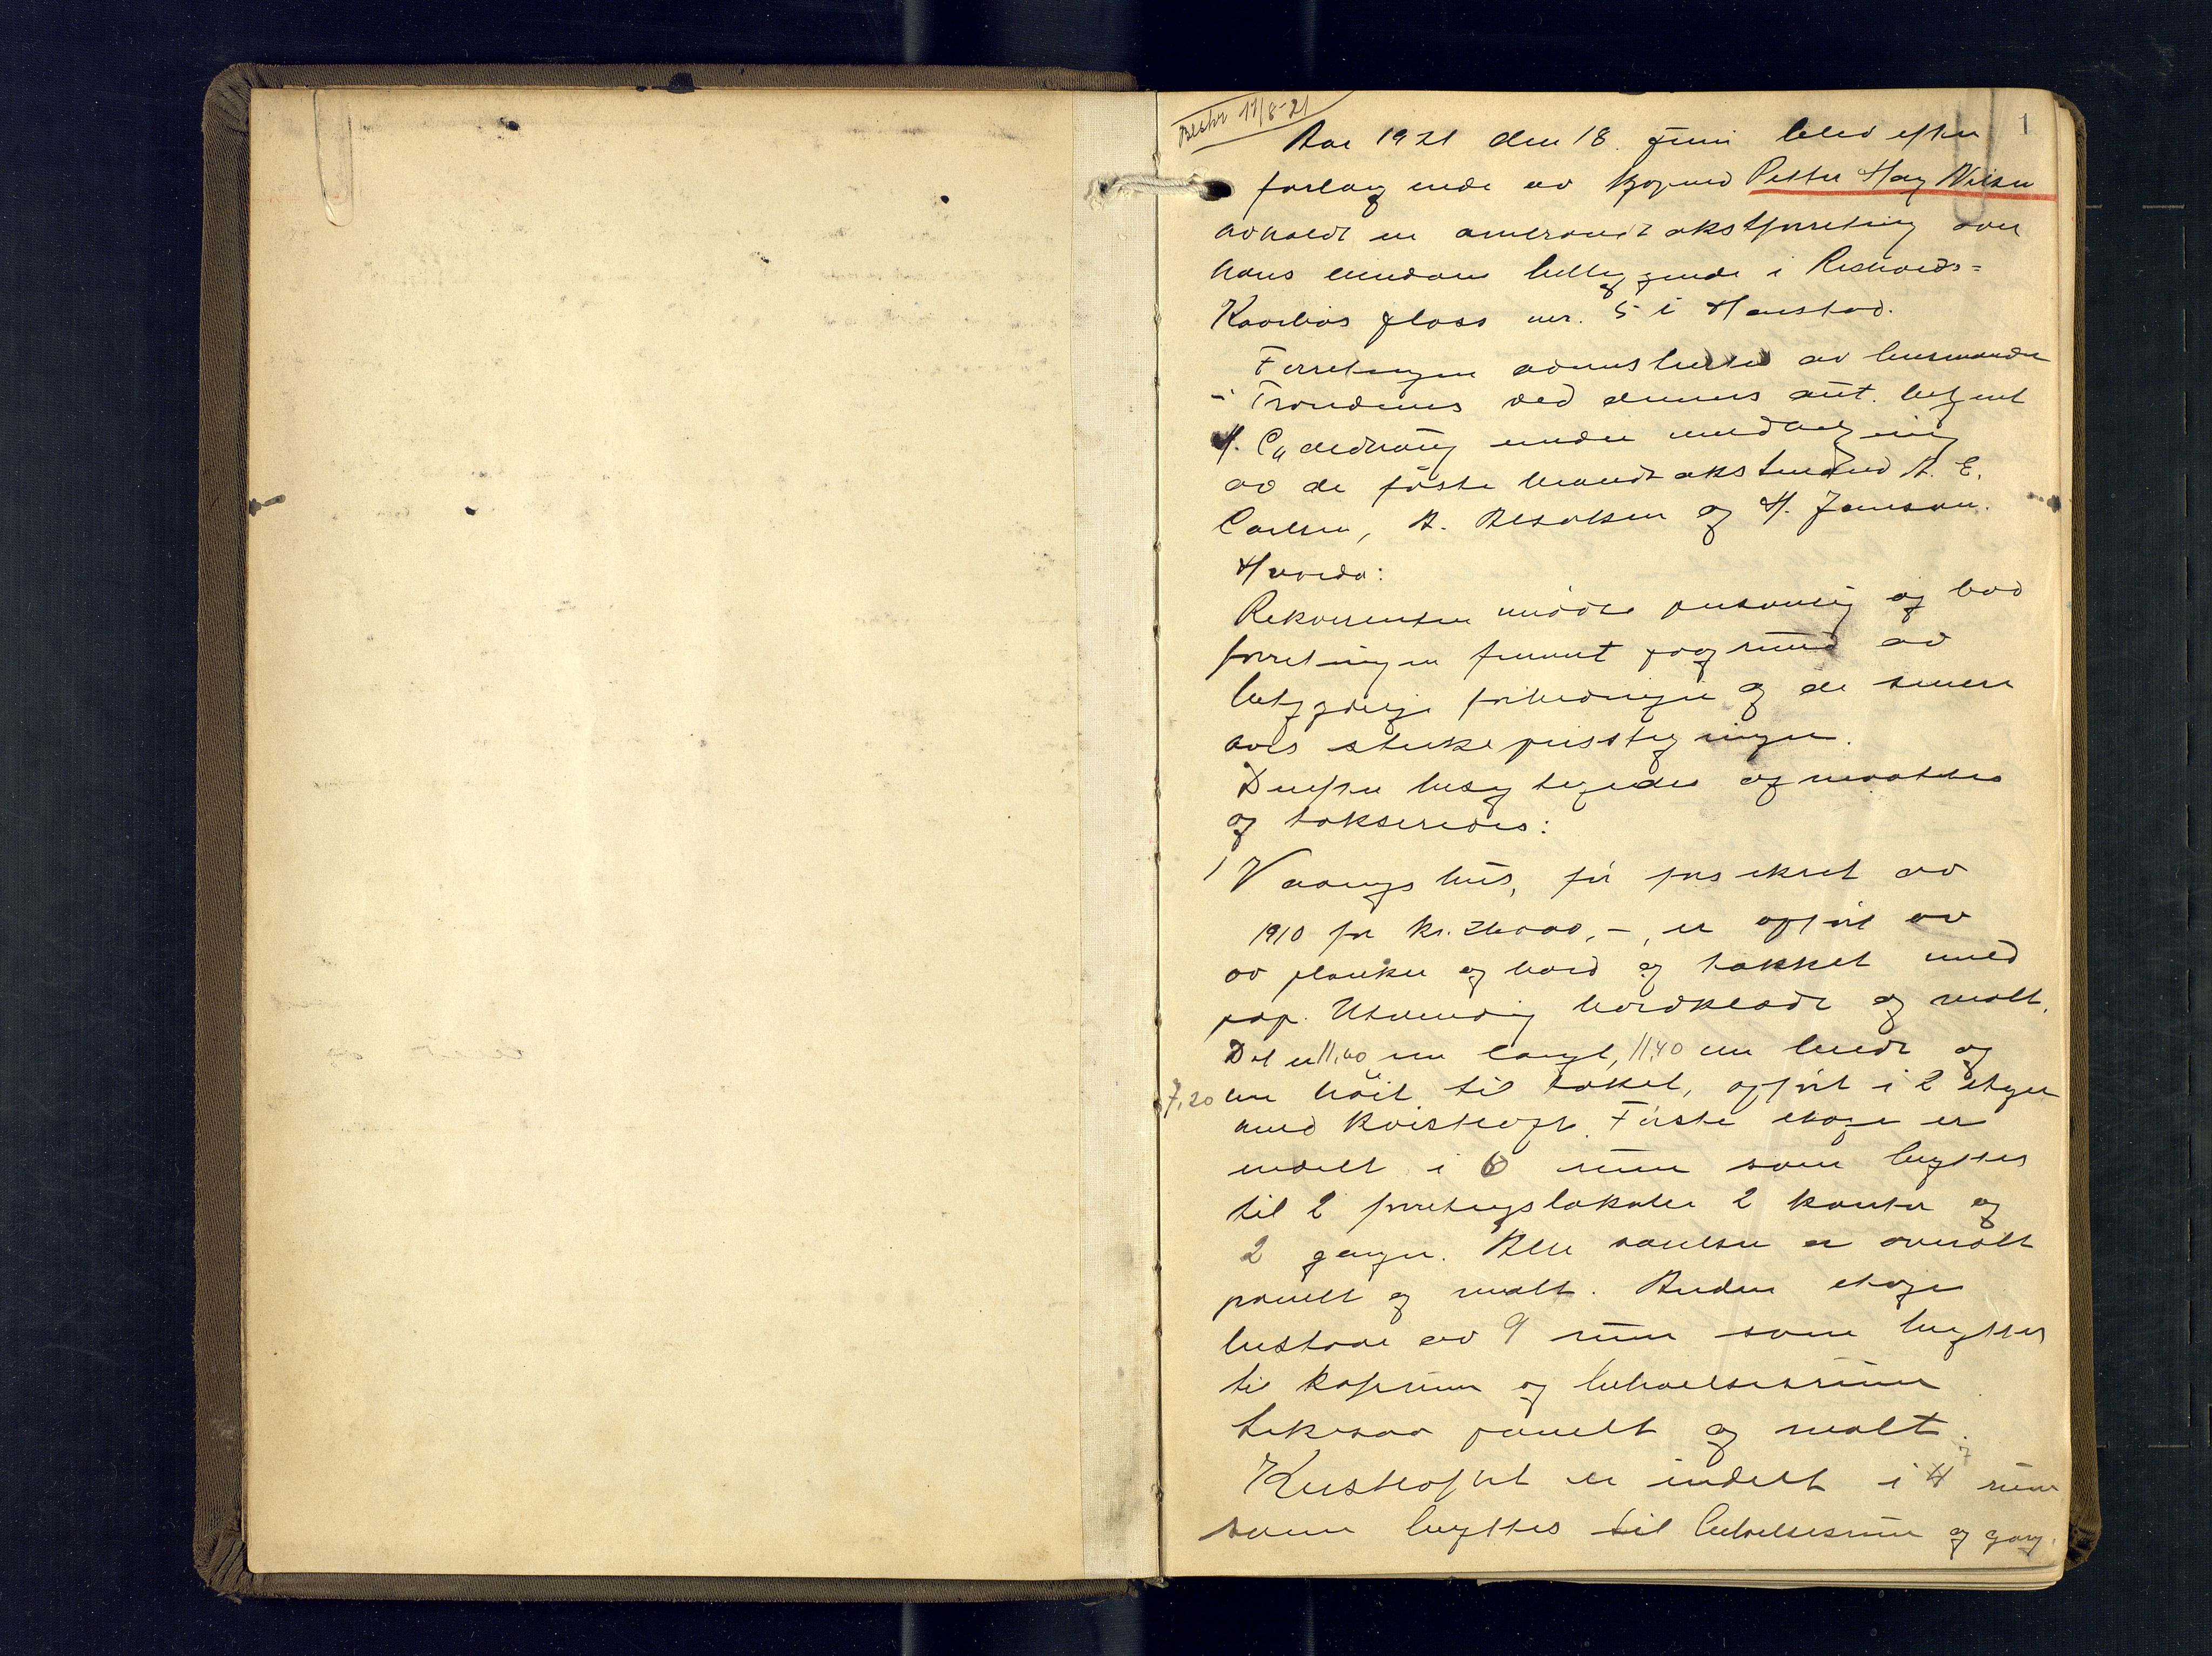 Beskr 17/8-21
1
Aar 1921 den 18. juni blev efter
forlangende av kjøpmd Petter Hag Nilsen
avholdt en ombrandtakstforretning over
hans eiendom beliggende i Richards-
Kaarbøs plass nr. 5 i Harstad.
Forretningen administrertes av lensmanden
i Trondenes ved dennes aut. betjent
under medvirkning
av de faste brandtakstmænd A. E.
Carlsen, A. Besaksen og H. Jenssen.
Hvorda:
Rekvirenten mødte personlig og bad
forretningen fremmet paa grund av
betydelige forbedringer og de senere
aars sterke prisstigninger.
Derefter besigtigedes og maaltes
og takseredes:
1 Vaaningshus, før forsikret av
1910 for kr. 26000,-, er opført av
av planker og bord og tækket med
pap. Utvendig bordklædt og malt.
Det er 11,60 m langt, 11,40 m bredt og
7,20 m høit til taket, opført i 2 etager
med kvistloft. Første etage er
indelt i 6 rum som benyttes
til 2 forretningslokaler 2 kontor og
2 ganger. Alle værelser er overalt
panelt og malt. Anden etage
bestaar av 9 rum som benyttes
til kaferum og beboelsesrum
likesaa panelt og malt.
Kvistloftet er indelt i 7 rum
som benyttes til beboelsesrum og gang.